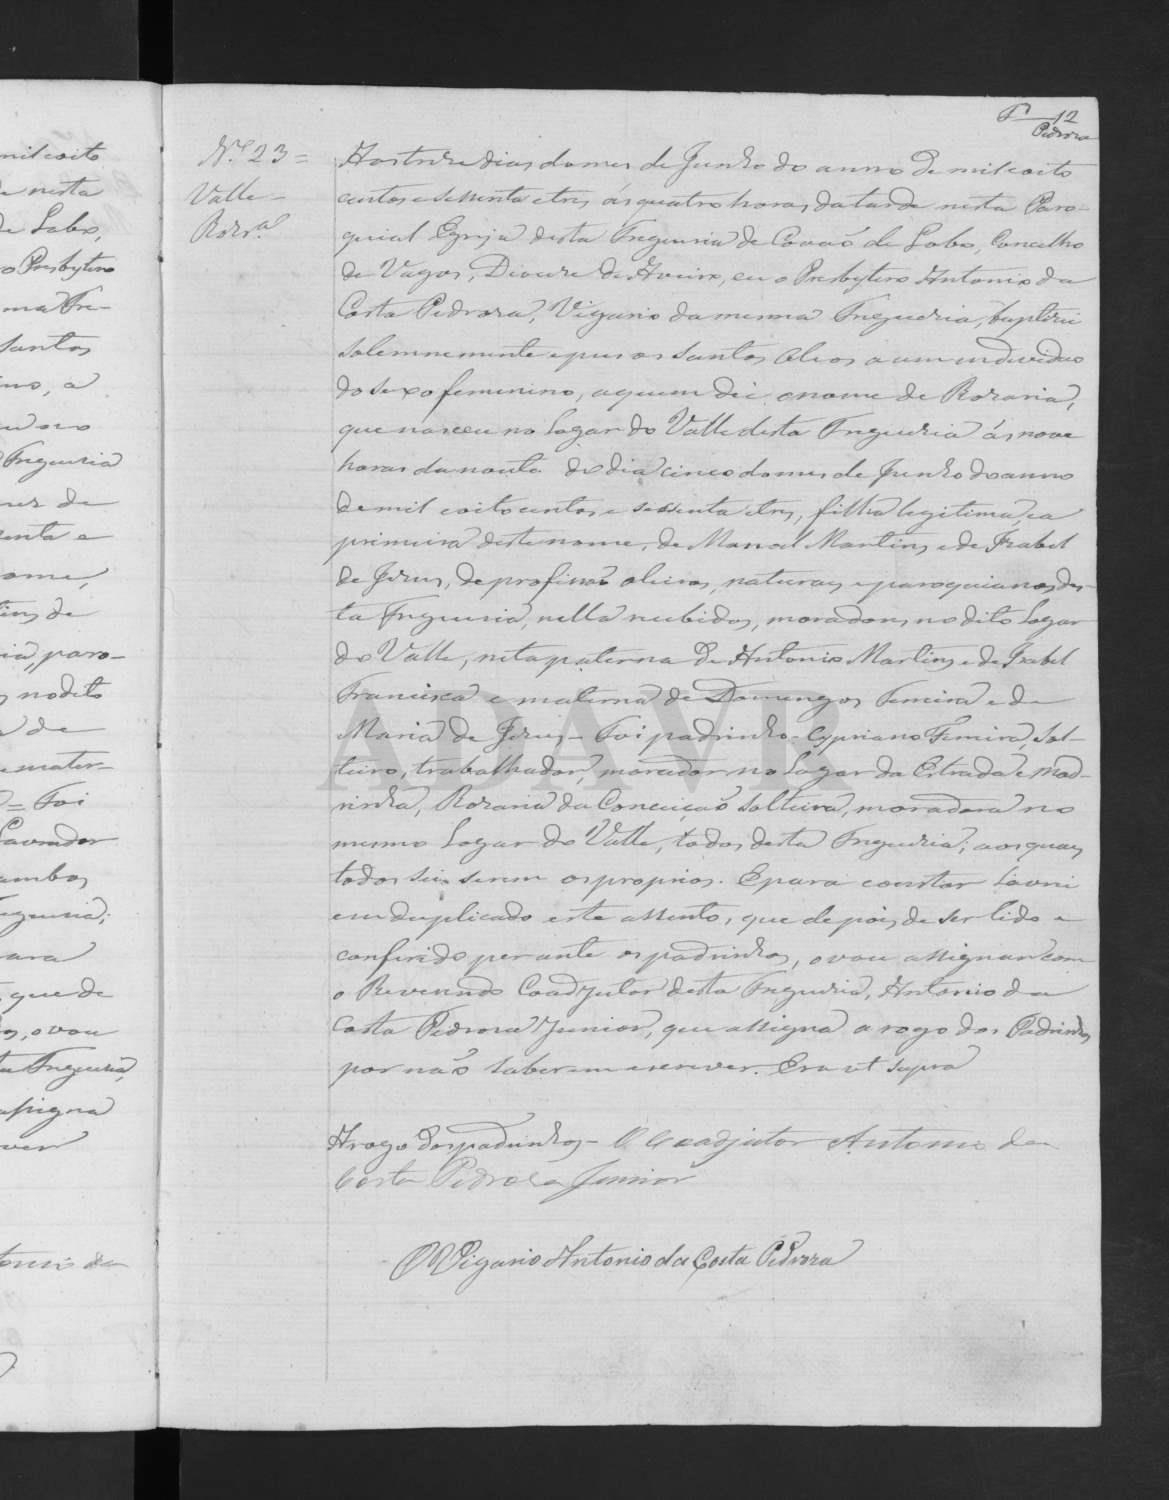 12
Pedroza
N.º 23 =
Valle -
Rozr.ª
Aos treze dias do mes de Junho do anno de mil e oito
centos e sessenta e tres, ás quatro horas da tarde nesta Paro-
quial Egreja desta Freguesia de Covaõ de Lobo, Concelho
de Vagos, Diocese de Aveiro, eu o Presbytero Antonio da
Costa Pedroza, Vigario da mesma Freguesia, baptizei
solemnemente e pus os santos oleos a um individuo
do sexo femenino, a quem dei o nome de Rozaria,
que nasceu no Logar do Valle desta Freguesia ás nove
horas da noute do dia cinco do mes de Junho do anno
de mil e oitocentos e sessenta e tres, filha legitima, e a
primeira deste nome, de Manoel Martins e de Izabel
de Jezus, de profissaõ oleiros, naturaes e paroquianos des-
ta Freguesia, nella recebidos, moradores no dito Logar
do Valle, neta paterna de Antonio Martins e de Izabel
Francisca e materna de Domingos Ferreira e de
Maria de Jezus - Foi padrinho - Cypriano Ferreira, sol-
teiro, trabalhador, morador no Logar da Estrada e Mad-
rinha, Rozaria da Conceiçaõ solteira, moradora no
mesmo Logar do Valle, todos desta Freguesia; aos quaes
todos sei serem os proprios. E para constar lavrei
em duplicado este assento, que depois de ser lido e
conferido perante os padrinhos, o vou assignar com
o Reverendo Coadjutor desta Freguesia, Antonio da
Costa Pedroza Junior, que assigna a rogo dos Padrinhos
por naõ saberem escrever. Era ut supra
A rogo dos padrinhos - O Coadjutor Antonio da
Costa Pedroza Junior
O Vigario Antonio da Costa Pedroza
ADAVR
mil e oito
nesta
de Lobo,
o Presbytero
ma Fre-
santos
no, a
Freguesia
mes de
enta e
ome,
tins de
ia, paro-
no dito
de
e mater-
= Foi
Lavrador
ambos
eguesia;
ara
que de
os, o vou
ta Freguesia,
assigna
ver
tonio da